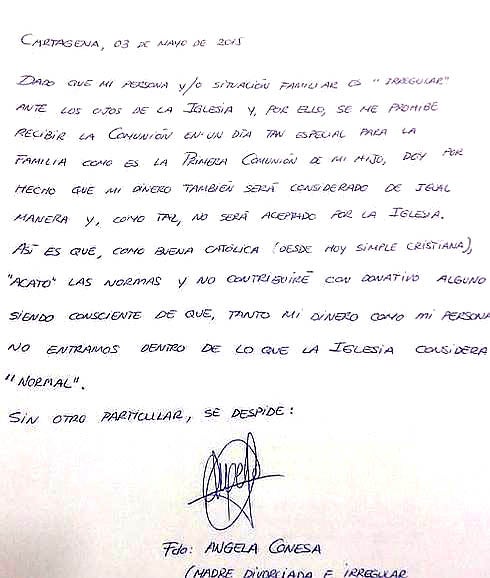 CARTAGENA, 03 DE MAYO DE 2015
DADO QUE MI PERSONA Y/O SITUACIÓN FAMILIAR ES "IRREGULAR"
ANTE LOS OJOS DE LA IGLESIA Y, POR ELLO, SE ME PROHIBE
RECIBIR LA COMUNIÓN EN UN DÍA TAN ESPECIAL PARA LA
FAMILIA COMO ES LA PRIMERA COMUNIÓN DE MI HIJO, DOY POR
HECHO QUE MI DINERO TAMBIÉN SERÁ CONSIDERADO DE IGUAL
MANERA Y, COMO TAL, NO SERÁ ACEPTADO POR LA IGLESIA.
ASÍ ES QUE, COMO BUENA CATÓLICA (DESDE HOY SIMPLE CRISTIANA),
"ACATO" LAS NORMAS Y NO CONTRIBUIRÉ CON DONATIVO ALGUNO
SIENDO CONSCIENTE DE QUE, TANTO MI DINERO COMO MI PERSONA
NO ENTRAMOS DENTRO DE LO QUE LA IGLESIA CONSIDERA
"NORMAL".
SIN OTRO PARTICULAR, SE DESPIDE:
Fdo: ANGELA CONESA
(MADRE DIVORCIADA E IRREGULAR